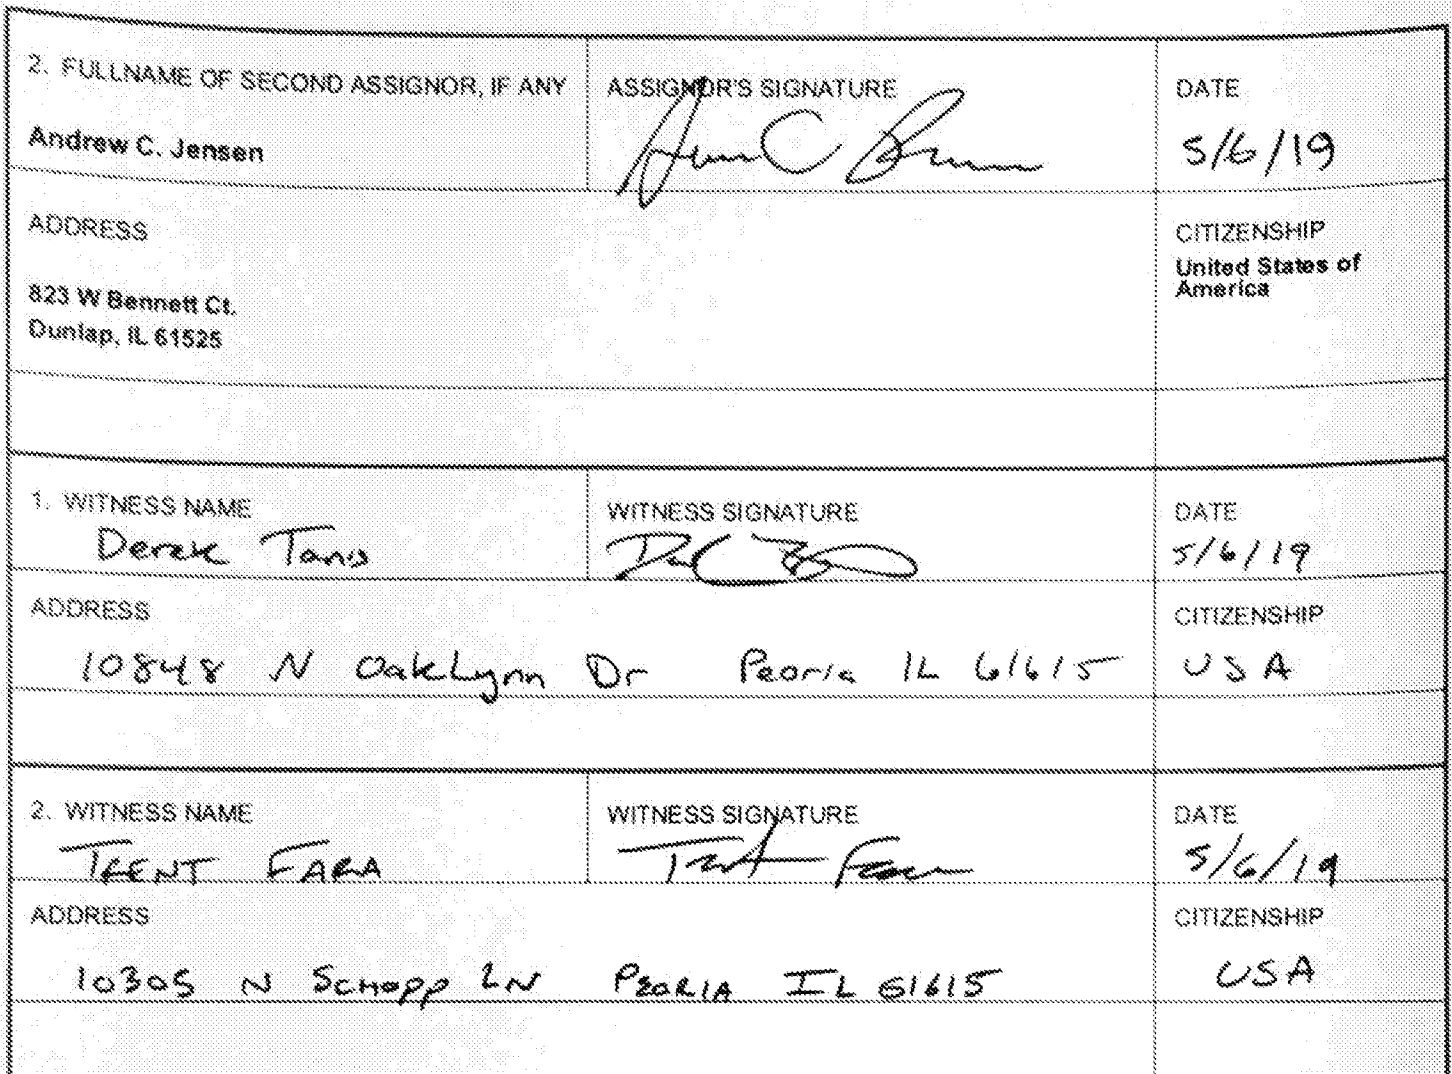 2. FULLNAME OF SECOND ASSIGNOR, IF ANY
Andrew C. Jensen
ASSIGNOR'S SIGNATURE
DATE
5/6/19
ADDRESS
823 W Bennett Ct.
Dunlap, IL 61525
CITIZENSHIP
United States of
America
1. WITNESS NAME
Derek Tanis
WITNESS SIGNATURE
DATE
5/6/19
ADDRESS
10848 N Oaklynn Dr Peoria IL 61615
CITIZENSHIP
USA
2. WITNESS NAME
TRENT FARA
WITNESS SIGNATURE
DATE
5/6/19
ADDRESS
10305 N SCHOPP LN PEORIA IL 61615
CITIZENSHIP
USA